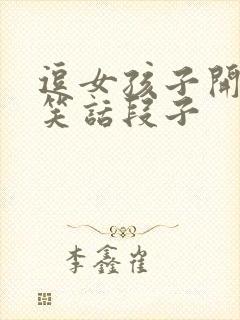 逗女孩子開
笑話段子
李鑫崔